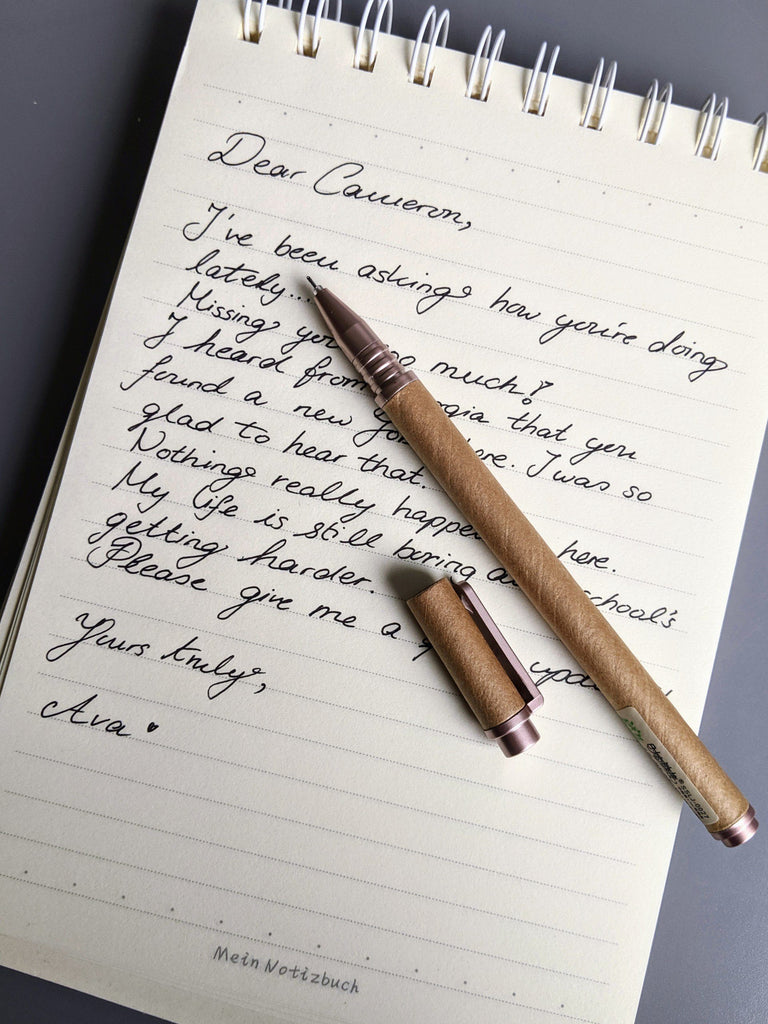 Dear Cameron,
I've been asking how you're doing
lately...
Missing you so much!
I heard from that you
found a new here. I was so
glad to hear that.
Nothing really here.
My life is still boring school's
getting harder.
Please give me a
Yours truly,
Ava
Mein Notizbuch